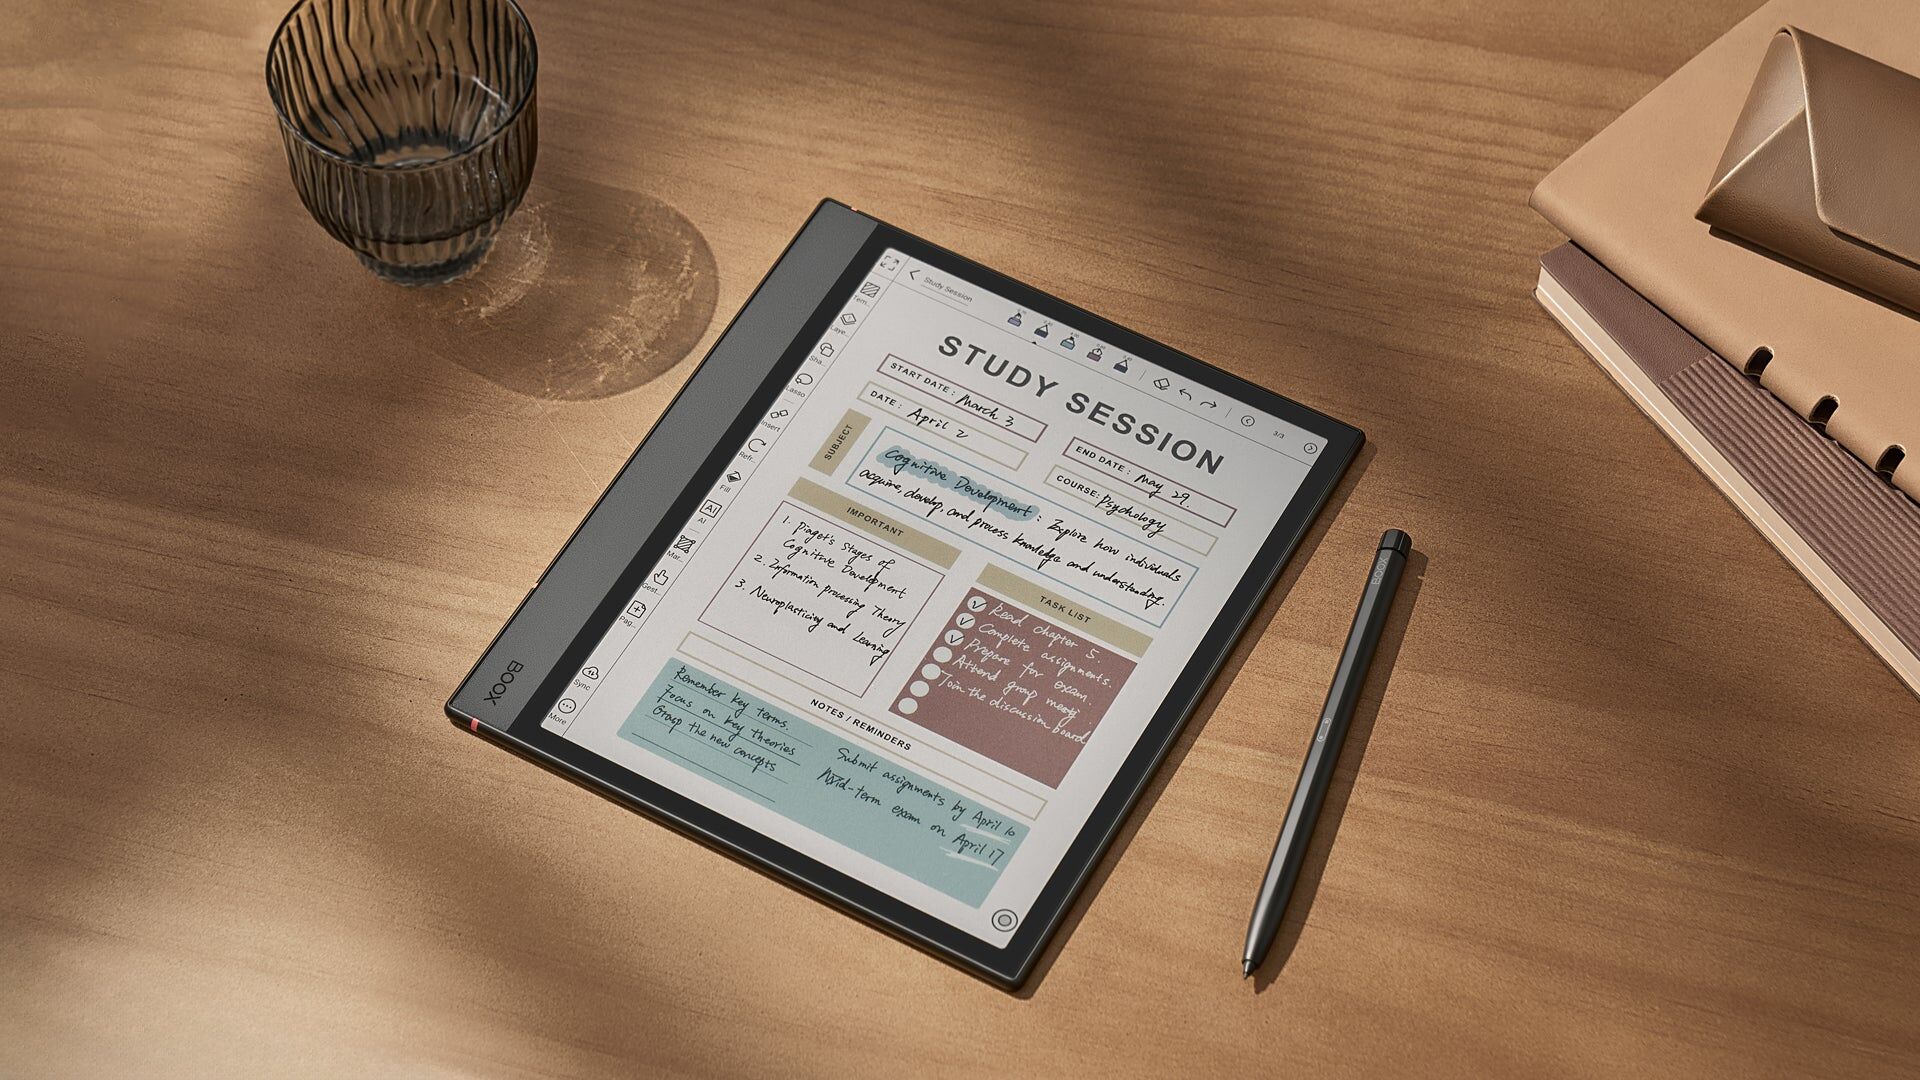 Study Session
3/3
Tem..
Laye..
Sha..
Lasso
Insert
Refr..
Fill
AI
AI
Mar..
Gest..
Pag..
Sync
More
STUDY SESSION
START DATE: March 3
END DATE: May 29.
DATE: April 2
COURSE: Psychology
SUBJECT
Cognitive Development: Explore how individuals
acquire, develop, and process knowledge and understanding.
IMPORTANT
1. Piaget's Stages of
Cognitive Development
2. Information processing Theory
3. Neuroplasticity and Learning
TASK LIST
Read chapter 5.
Complete assignments.
Prepare for exam.
Attend group
Join the discussion board
NOTES / REMINDERS
Remember key terms.
Focus on key theories
Grasp the new concepts
Submit assignments by April 10
Mid-term exam on April 17
BOOX
BOOX